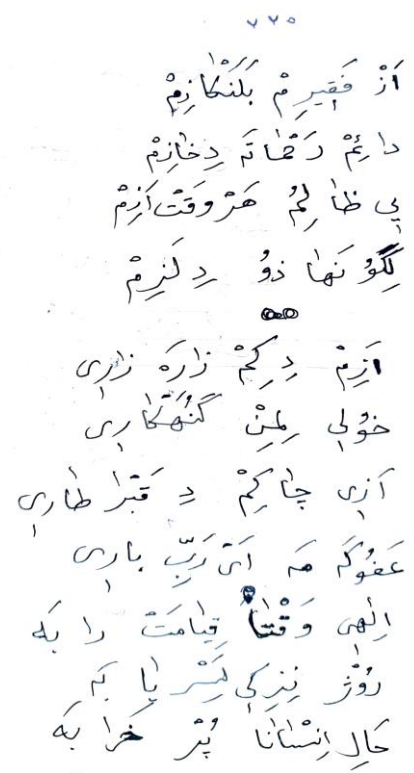 ٧٧٥
اَزْ فَقِيرِمْ بَلَنْگازِمْ
دائِمْ رَحْماتَه دِخازِمْ
پِي ظالِمُ هَرْ وَقْتْ اَزِمْ
لِگُونَها ذوُ دِلَزِمْ
اَزِمْ دِكِمْ زارَه زارِي
خوُلِي لِمِنْ گُنَهْكارِي
اَزِي چاكِمْ دِ قَبْرا طارِي
عَفُوكَه مَه اَىْ رَبِّ بارِي
اِلٰهِي وَقْتا قِيامَتْ رابَه
رُوْژ نِزِكِي سَرْ يا بَه
حَالِ اِنْسانا پُرْ خَرا بَه